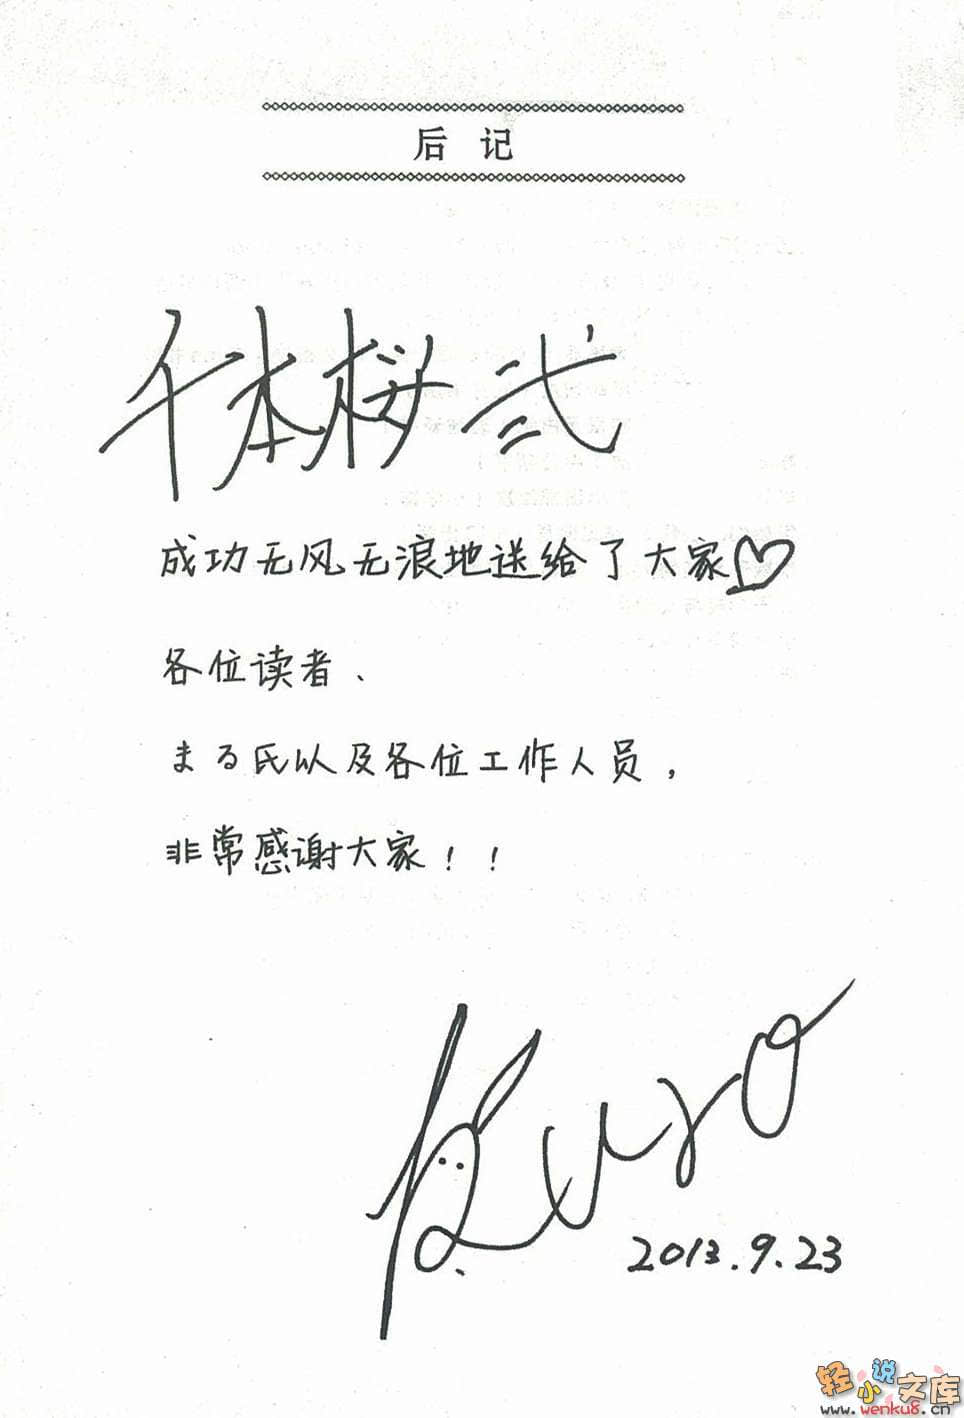 后记
千本桜 弐
成功无风无浪地送给了大家♡
各位读者、
まる氏以及各位工作人员，
非常感谢大家！！
Kuro
2013.9.23
轻小说文库
www.wenku8.cn